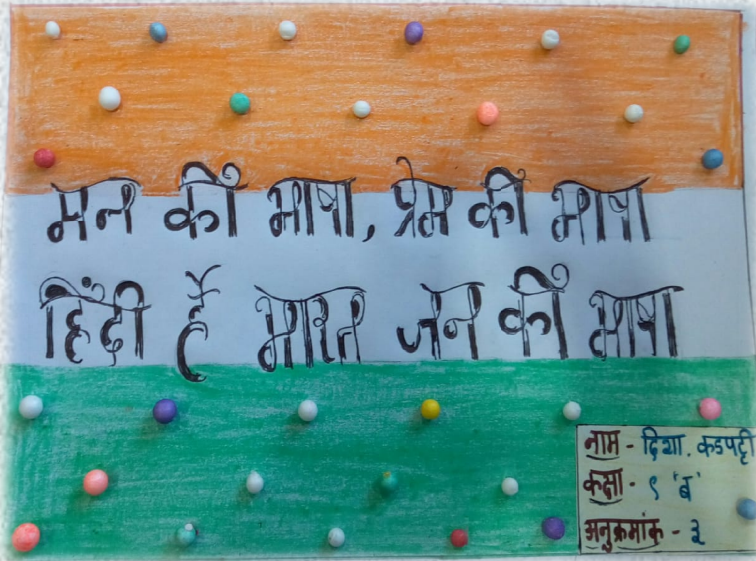 मन की भाषा, प्रेम की भाषा
हिंदी है भारत जन की भाषा
नाम - दिशा. कडपट्टी
कक्षा - ९ 'ब'
अनुक्रमांक - ३